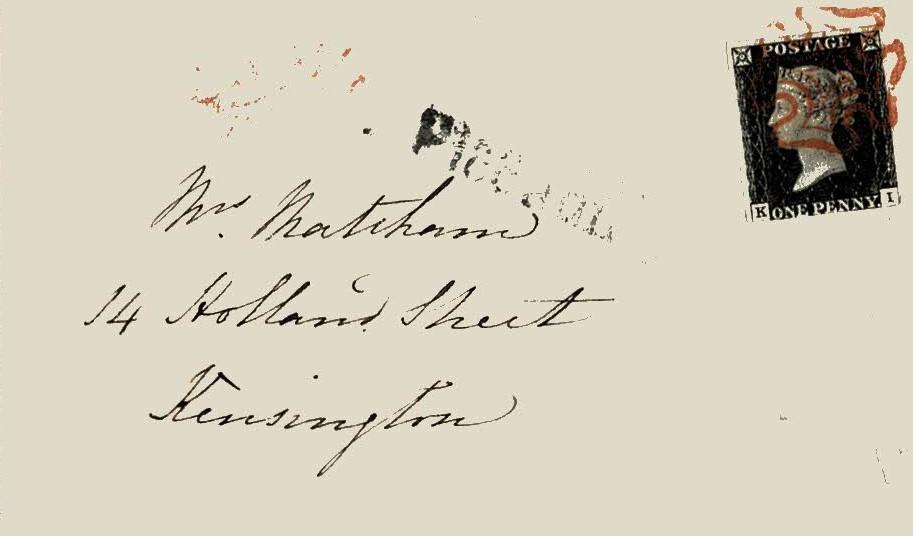 POSTAGE
K ONE PENNY I
Mrs. Matcham
14 Holland Street
Kensington